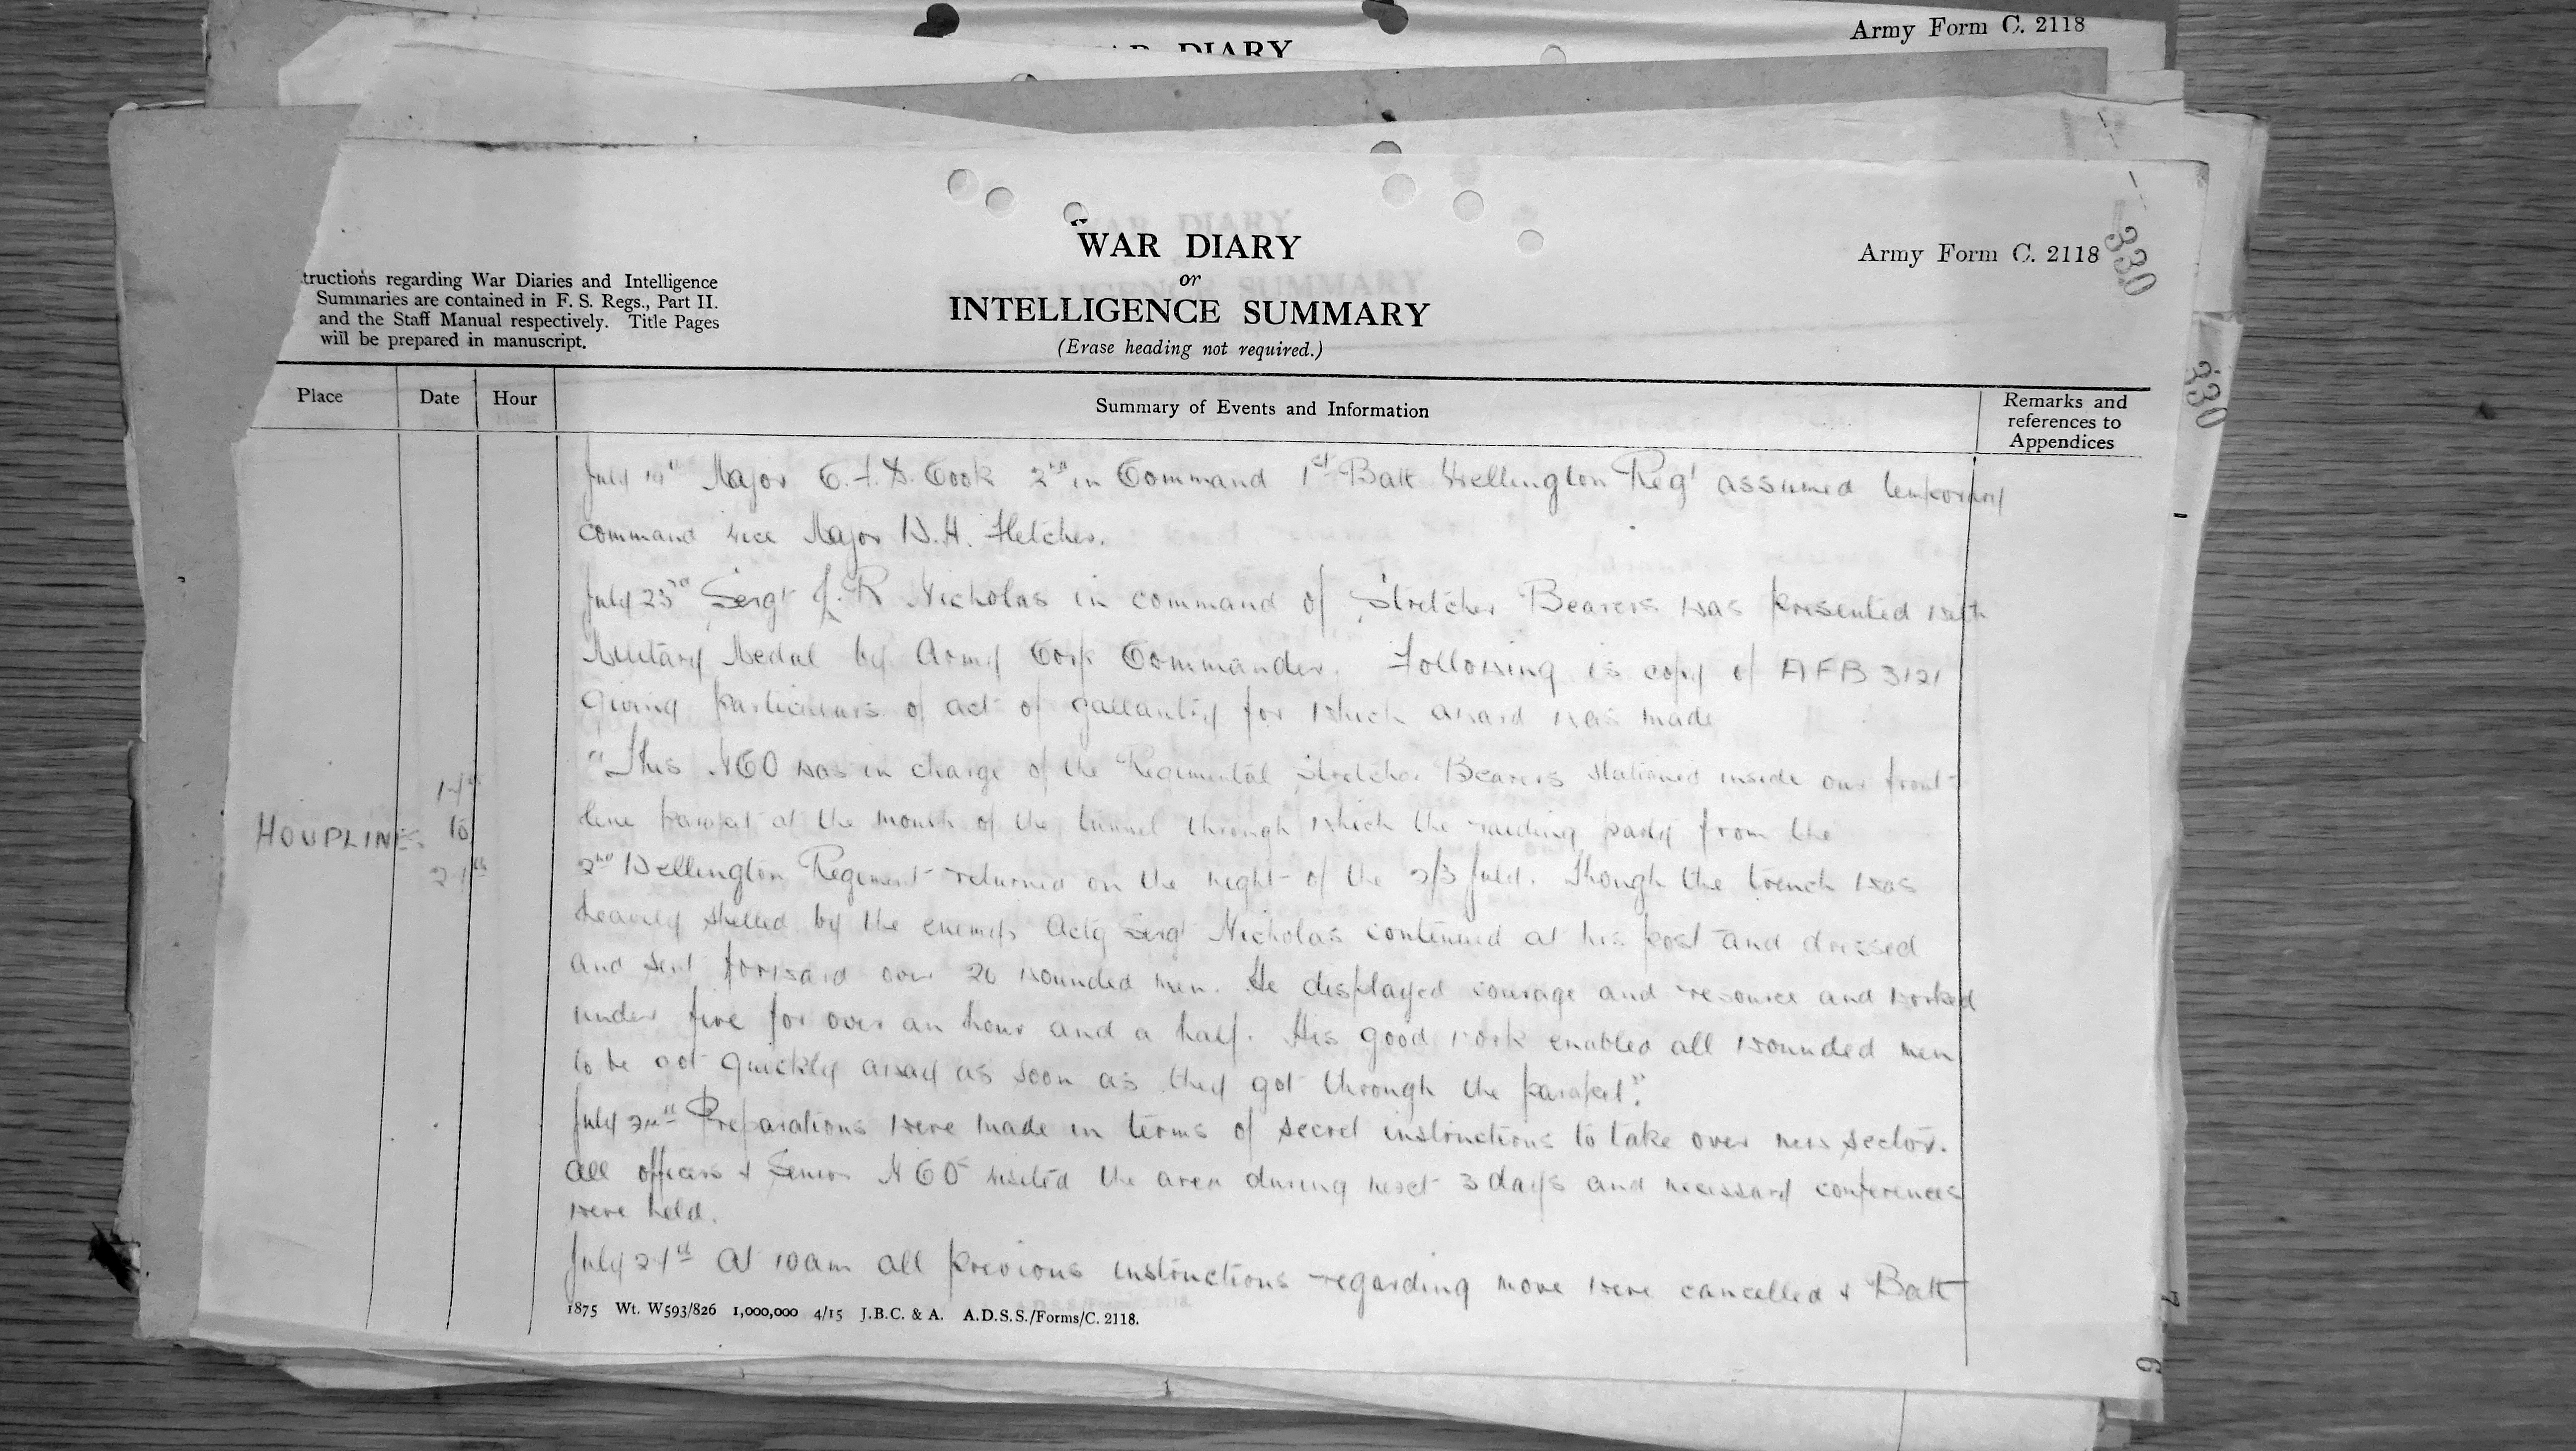 Army Form C. 2118
DIARY
WAR DIARY
or
INTELLIGENCE SUMMARY
(Erase heading not required.)
Army Form C. 2118
330
330
tructions regarding War Diaries and Intelligence
Summaries are contained in F. S. Regs., Part II.
and the Staff Manual respectively. Title Pages
will be prepared in manuscript.
Place
Date
Hour
Summary of Events and Information
Remarks and
references to
Appendices
July Major C. F. D. Cook 2nd in Command 1st Batt Wellington Regt assumed temporary
command vice Major W.H. Fletcher.
July 23rd Sergt J. R Nicholas in command of Stretcher Bearers was presented with
Military Medal by Army Corp Commander. Following is copy of AFB 3121
giving particulars of act of gallantry for which award was made
"This NCO was in charge of the Regimental Stretcher Bearers stationed inside our front-
line parapet at the mouth of the tunnel through which the raiding party from the
2nd Wellington Regiment returned on the night of the 2/3 July. Though the trench was
heavily shelled by the enemy, Actg Sergt Nicholas continued at his post and dressed
and sent forward over 20 wounded men. He displayed courage and resource and worked
under fire for over an hour and a half. His good work enabled all wounded men
to be got quickly away as soon as they got through the parapet".
July Preparations were made in terms of secret instructions to take over new sector.
All officers & Senior NCOs visited the area during next 3 days and necessary conferences
were held.
July At 10am all previous instructions regarding move were cancelled & Batt
HOUPLINES
to
1875 Wt. W593/826 1,000,000 4/15 J.B.C. & A. A.D.S.S./Forms/C. 2118.